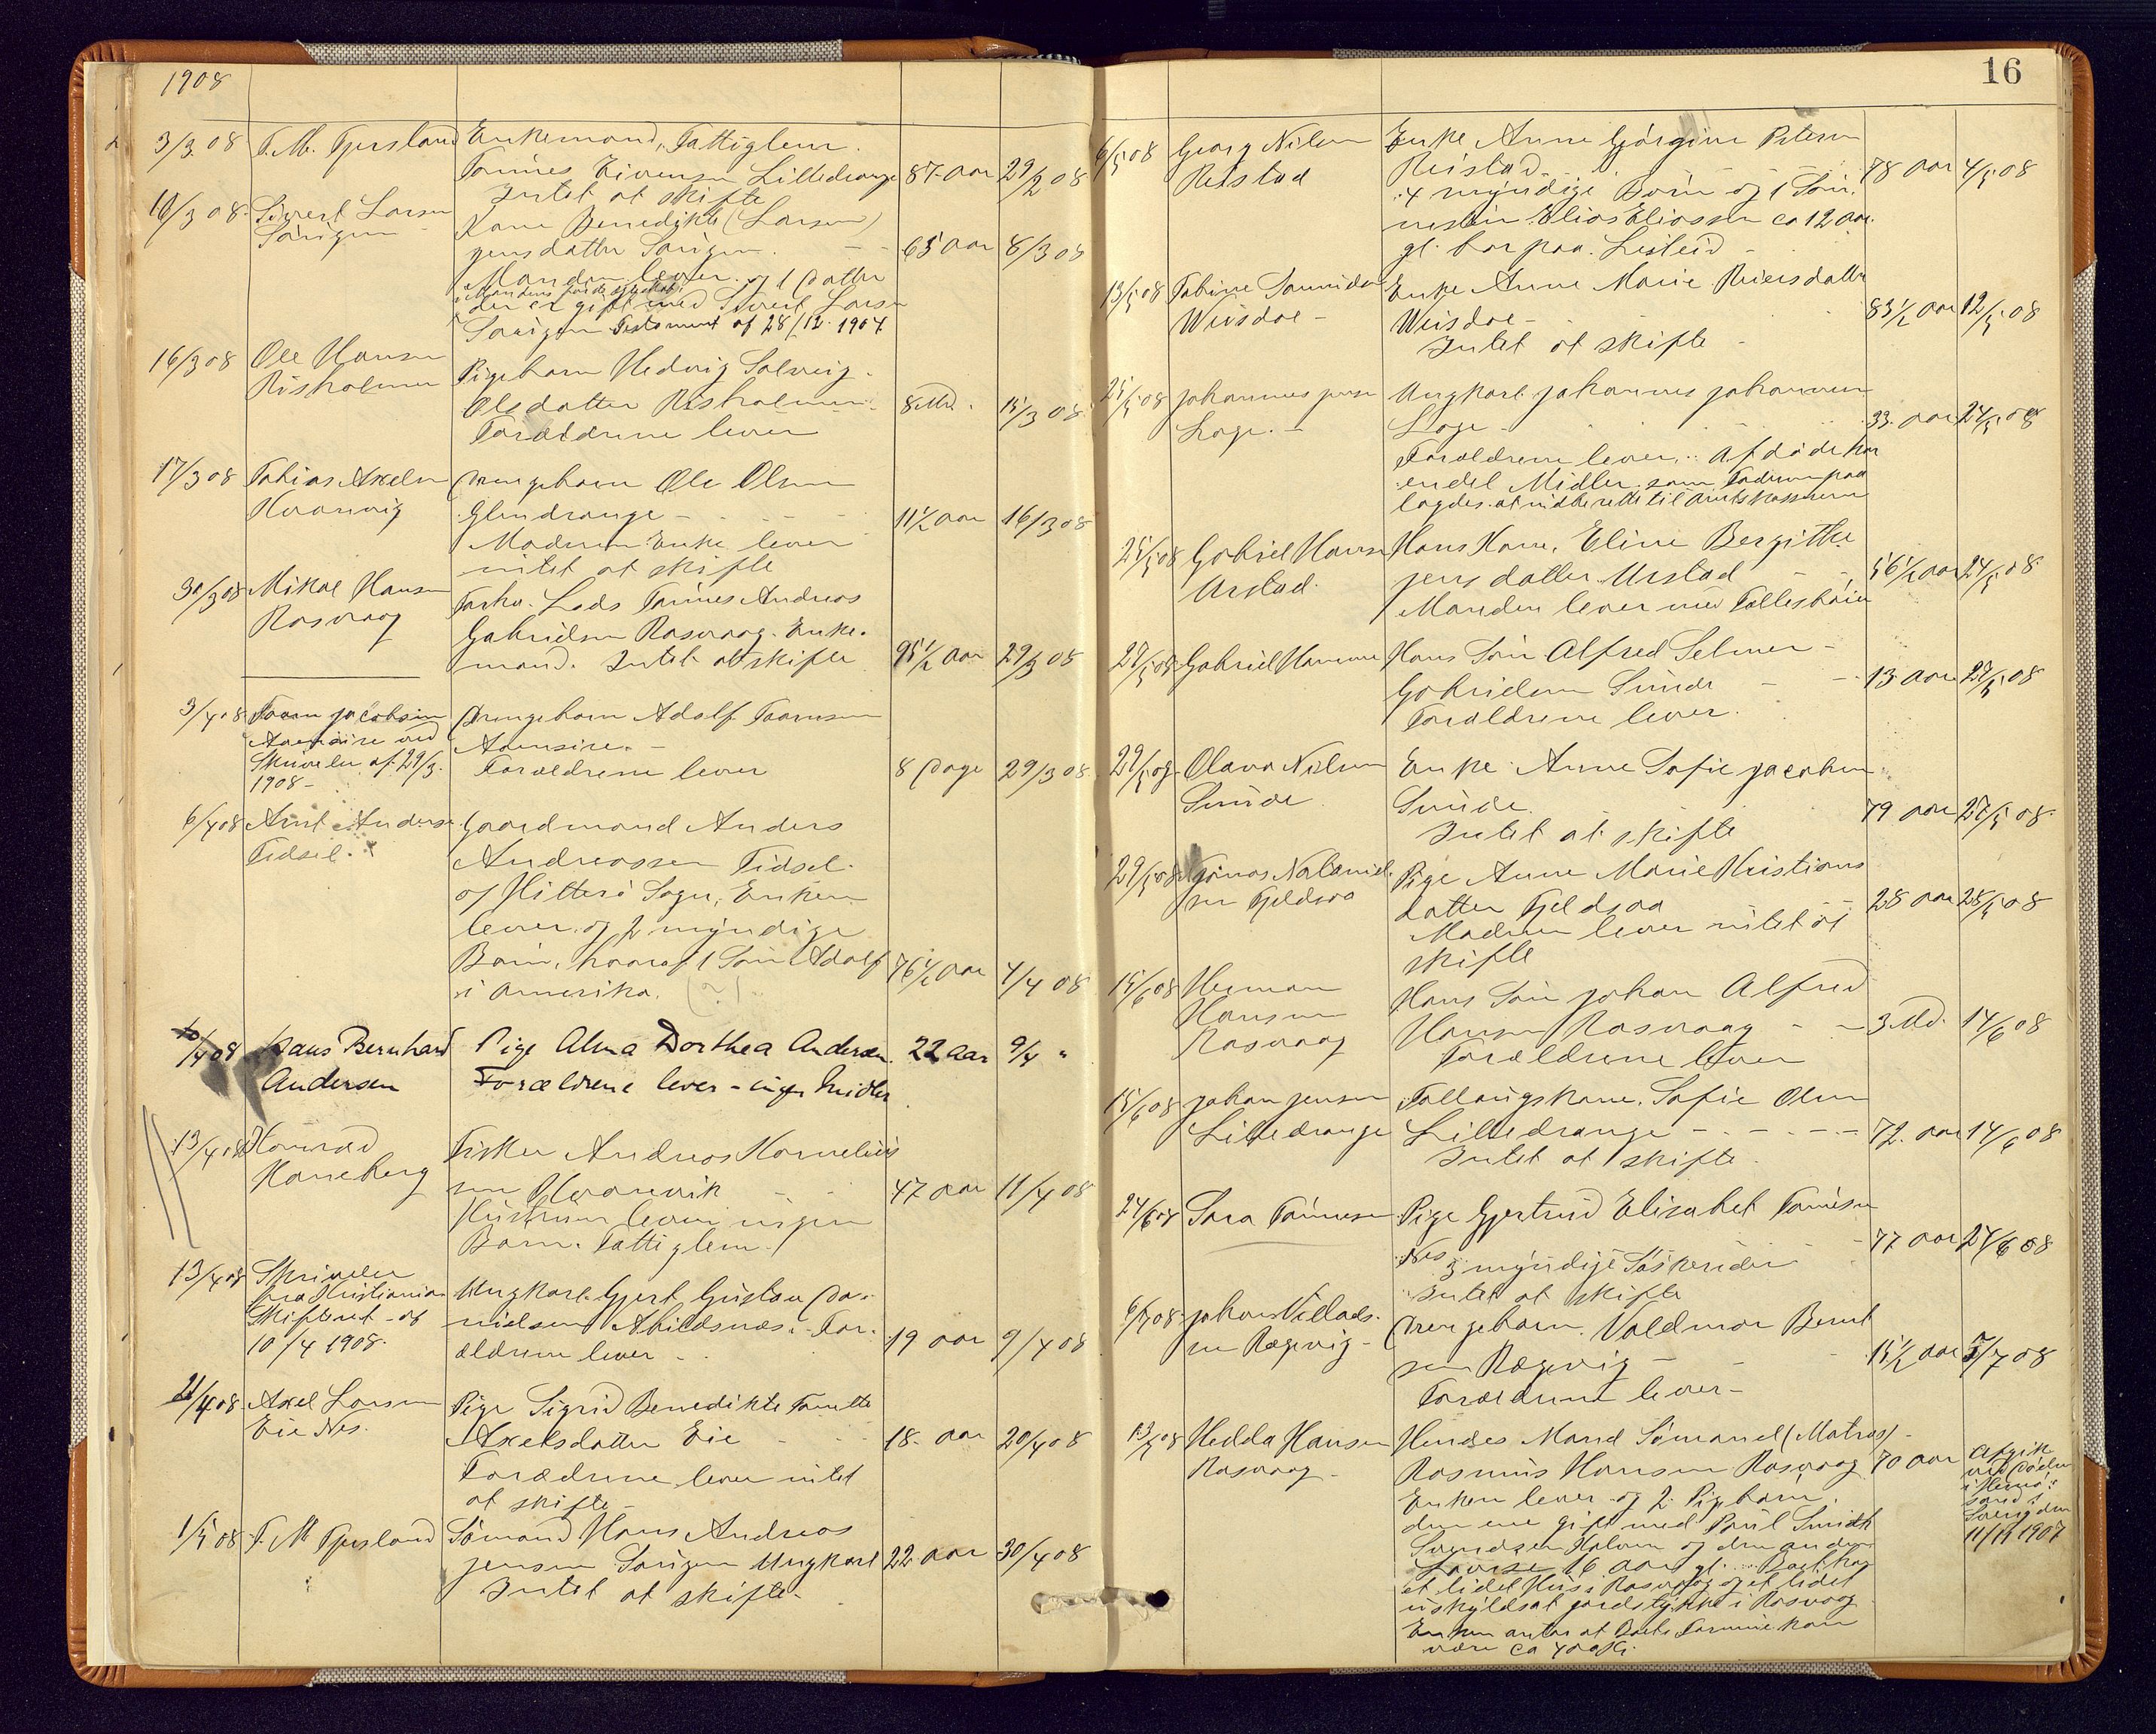 1908
3/3 08 T. M. Tjersland Enkemand, Fattiglem.
Tønnes Eivensen Lilledrange 87 aar 29/2 08
Intet at skifte
10/3 08 Sivert Larsen
Karen Benedikte (Larsen)
Jensdatter 65 aar 8/3 08
Manden lever og 1 Datter
der er gift med Sivert Larsen
Testament af 28/12 1904
16/3 08 Ole Hansen Pigebarn Hedvig Solveig
Risholmen Olsdatter Risholmen 8 Md. 15/3 08
Forældrene lever
17/3 08 Tobias Axelsen Drengebarn Ole Olsen
Glendrange 11 1/2 aar 16/3 08
Moderen Enke lever
intet at skifte
30/3 08 Mikal Hansen Lods Tønnes Andreas
Rasvaag Gabrielsen Rasvaag. Enke-
mand. Intet at skifte 95 1/2 aar 29/3 08
3/4 08 Jacobsen Drengebarn Adolf
Aavensire ved Aavensire.
Skrivelse af 29/3 Forældrene lever 8 Dage 29/3 08
1908
6/4 08 Arnt Anders Gaardmand Anders
Fidsel. Andreassen Fidsel
af Hitterø Sogn, Enken
lever og 2 myndige
Børn, hvoraf 1 Søn Adolf 76 1/2 aar 4/4 08
i Amerika. (?)
10/4 08 Hans Bernhard Pige Alma Dorthea Andersen. 22 aar 9/4 "
Andersen Forældrene lever - ingen Midler
13/4 08 Konrad Fisker Andreas Kornelius
Haneberg sen 47 aar 11/4 08
Hustruen lever ingen
Børn. Fattiglem.
13/4 08 Skrivelse
fra Kristiania Ungkarl Gjert Gustav Da-
Skifteret af nielsen Abildsnæs. For-
10/4 1908. ældrene lever 19 aar 9/4 08
21/4 08 Axel Larsen Pige Sigrid Benedikte
Eie Nes. Axelsdatter Eie 18 aar 20/4 08
Forældrene lever intet
at skifte
1/5 08 T. M. Tjersland Sømand Hans Andreas
Jensen Ungkarl 22 aar 30/4 08
Intet at skifte
16
6/5 08 Georg Nilsen Enke Anne Gjørgine Petersen
Reistad Reistad. 78 aar 4/5 08
4 myndige Børn og 1 Søn-
nesøn Elias Eliassen ca 12 aar
gl. bor paa
13/5 08 Tobine Enke Anne Marie Reiersdatter
Weisdal 83 1/2 aar 12/5 08
Intet at skifte
25/5 08 Johannes Jensen Ungkarl Johannes Johannesen
Loge Loge 33 aar 24/5 08
Forældrene lever. Afdøde har
endel Midler som Faderen paa-
lagdes at indberette til
25/5 08 Gabriel Hansen Hans Kone, Eline Bergitte
Urstad Jensdatter Urstad 56 1/2 aar 24/5 08
Manden lever med Fællesbørn
27/5 08 Gabriel Hans Søn Alfred Selmer
Gabrielsen Sunde 13 aar 27/5 08
Forældrene lever.
29/5 08 Olava Nilsen Enke Anne Sofie Jacobsen
Sunde Sunde 79 aar 27/5 08
Intet at skifte
29/5 08 Natanael- Pige Anne Marie Kristians-
sen Fjeldsaa datter Fjeldsaa 28 aar 28/5 08
Moderen lever intet at
skifte
15/6 08 Herman Hans Søn Johan Alfred
Hansen Hansen Rasvaag 3 Md. 14/6 08
Rasvaag Forældrene lever
15/6 08 Johan Jensen Sofie Olsen
Lilledrange Lilledrange 72 aar 14/6 08
Intet at skifte
24/6 08 Sara Tønnesen Pige Gjertrud Elisabet Tønnesen
Nes 77 aar 24/6 08
3 myndige Søskende
Intet at skifte
6/7 08 Johan Villads- Drengebarn Valdemar Bernt-
sen Rægevig sen Rægevig 15 1/2 aar 5/7 08
Forældrene lever
13/7 08 Hedda Hansen Hendes Mand Sømand (Matros)
Rasvaag Rasmus Hansen Rasvaag 70 aar Afgik
Enken lever og 2 Pigebørn, ved Døden
den ene gift med Paul Smidth
Svendsen og den anden
Lovise 16 aar gl. Boet har
et lidet Hus i Rasvaag og et lidet
uskyldsat Jordstykke i Rasvaag 11/11 1907
Enken antar at Boets Formue kan
være ca 400 Kr.